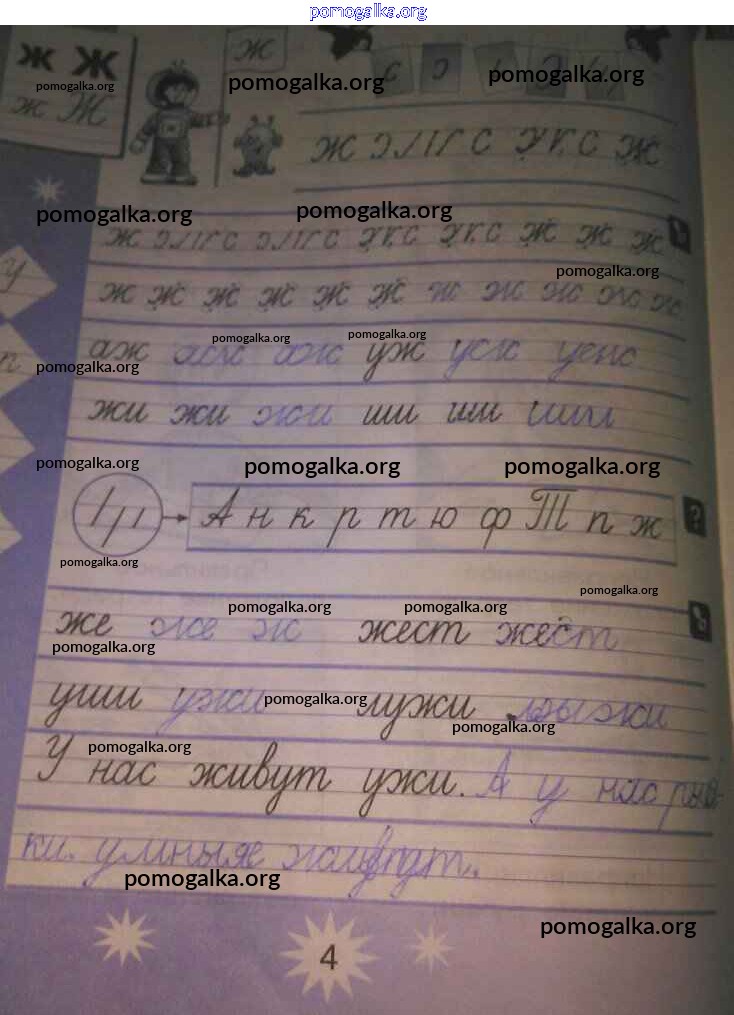 pomogalka.org
ж ж
ж Ж
ж
pomogalka.org pomogalka.org pomogalka.org
ж с ж
pomogalka.org pomogalka.org
ж ж ж ж
pomogalka.org
ж ж ж ж ж ж ж ж ж ж ж
pomogalka.org pomogalka.org
аж аж аж уж уж уж
pomogalka.org
жи жи жи ши ши ши
pomogalka.org pomogalka.org pomogalka.org
А н к р т ю ф Т п ж
pomogalka.org pomogalka.org
pomogalka.org pomogalka.org
же же ж жест жест
pomogalka.org
ужи лужи лыжи
pomogalka.org pomogalka.org
pomogalka.org
У нас живут ужи. А у нас
ки. живут.
pomogalka.org
pomogalka.org
4